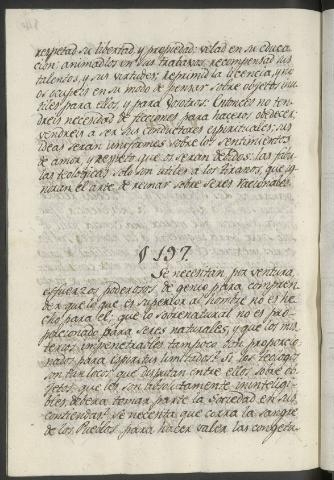 respetad su libertad y propiedad: velad en su educa
cion: animadlos en sus trabaxos: recompensad sus
talentos, y sus virtudes; reprimid la licencia, y no
os ocupeis en su modo de pensar sobre objetos inu
tiles para ellos, y para vosotros: Entonces no ten
dreis necesidad de ficciones para haceros obedecer:
vendreis a ser sus conductores espirituales: sus
ideas serán uniformes sobre los sentimientos
de amor, y respeto que os serán debidos: las fabu
las teologicas solo son utiles a los tiranos, que ig
noran el arte de reinar sobre seres racionales.
§ 197.
Se necesitan por ventura
esfuerzos poderosos de genio para compren
der que lo que es superior al hombre no es he
cho para el; que lo sobrenatural no es pro
porcionado para seres naturales; y que los mis
terios impenetrables tampoco son proporcio
nados para espiritus limitados? Si los teologos
son tan locos que disputan entre ellos sobre ob
jetos que les son absolutamente ininteligi
bles, deberá tomar parte la sociedad en sus
contiendas? Se necesita que corra la sangre
de los Pueblos para hacer valer las congetu-